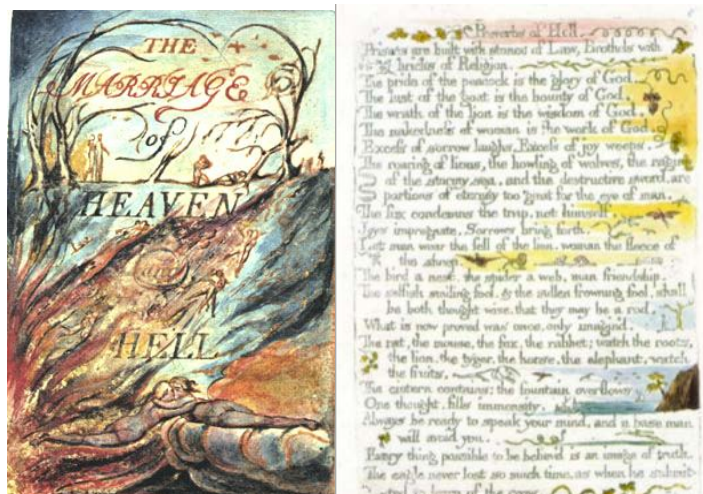 THE
MARRIAGE
of
HEAVEN
and
HELL
Proverbs of Hell.
Prisons are built with stones of Law, Brothels with
bricks of Religion.
The pride of the peacock is the glory of God.
The lust of the goat is the bounty of God.
The wrath of the lion is the wisdom of God.
The nakedness of woman is the work of God.
Excess of sorrow laughs. Excess of joy weeps.
The roaring of lions, the howling of wolves, the raging
of the stormy sea, and the destructive sword, are
portions of eternity too great for the eye of man.
The fox condemns the trap, not himself.
Joys impregnate. Sorrows bring forth.
Let man wear the fell of the lion, woman the fleece of
the sheep.
The bird a nest, the spider a web, man friendship.
The selfish smiling fool, & the sullen frowning fool, shall
be both thought wise, that they may be a rod.
What is now proved was once, only imagin'd.
The rat, the mouse, the fox, the rabbet; watch the roots,
the lion, the tyger, the horse, the elephant, watch
the fruits.
The cistern contains; the fountain overflows
One thought, fills immensity.
Always be ready to speak your mind, and a base man
will avoid you.
Every thing possible to be believ'd is an image of truth.
The eagle never lost so much time, as when he submit-